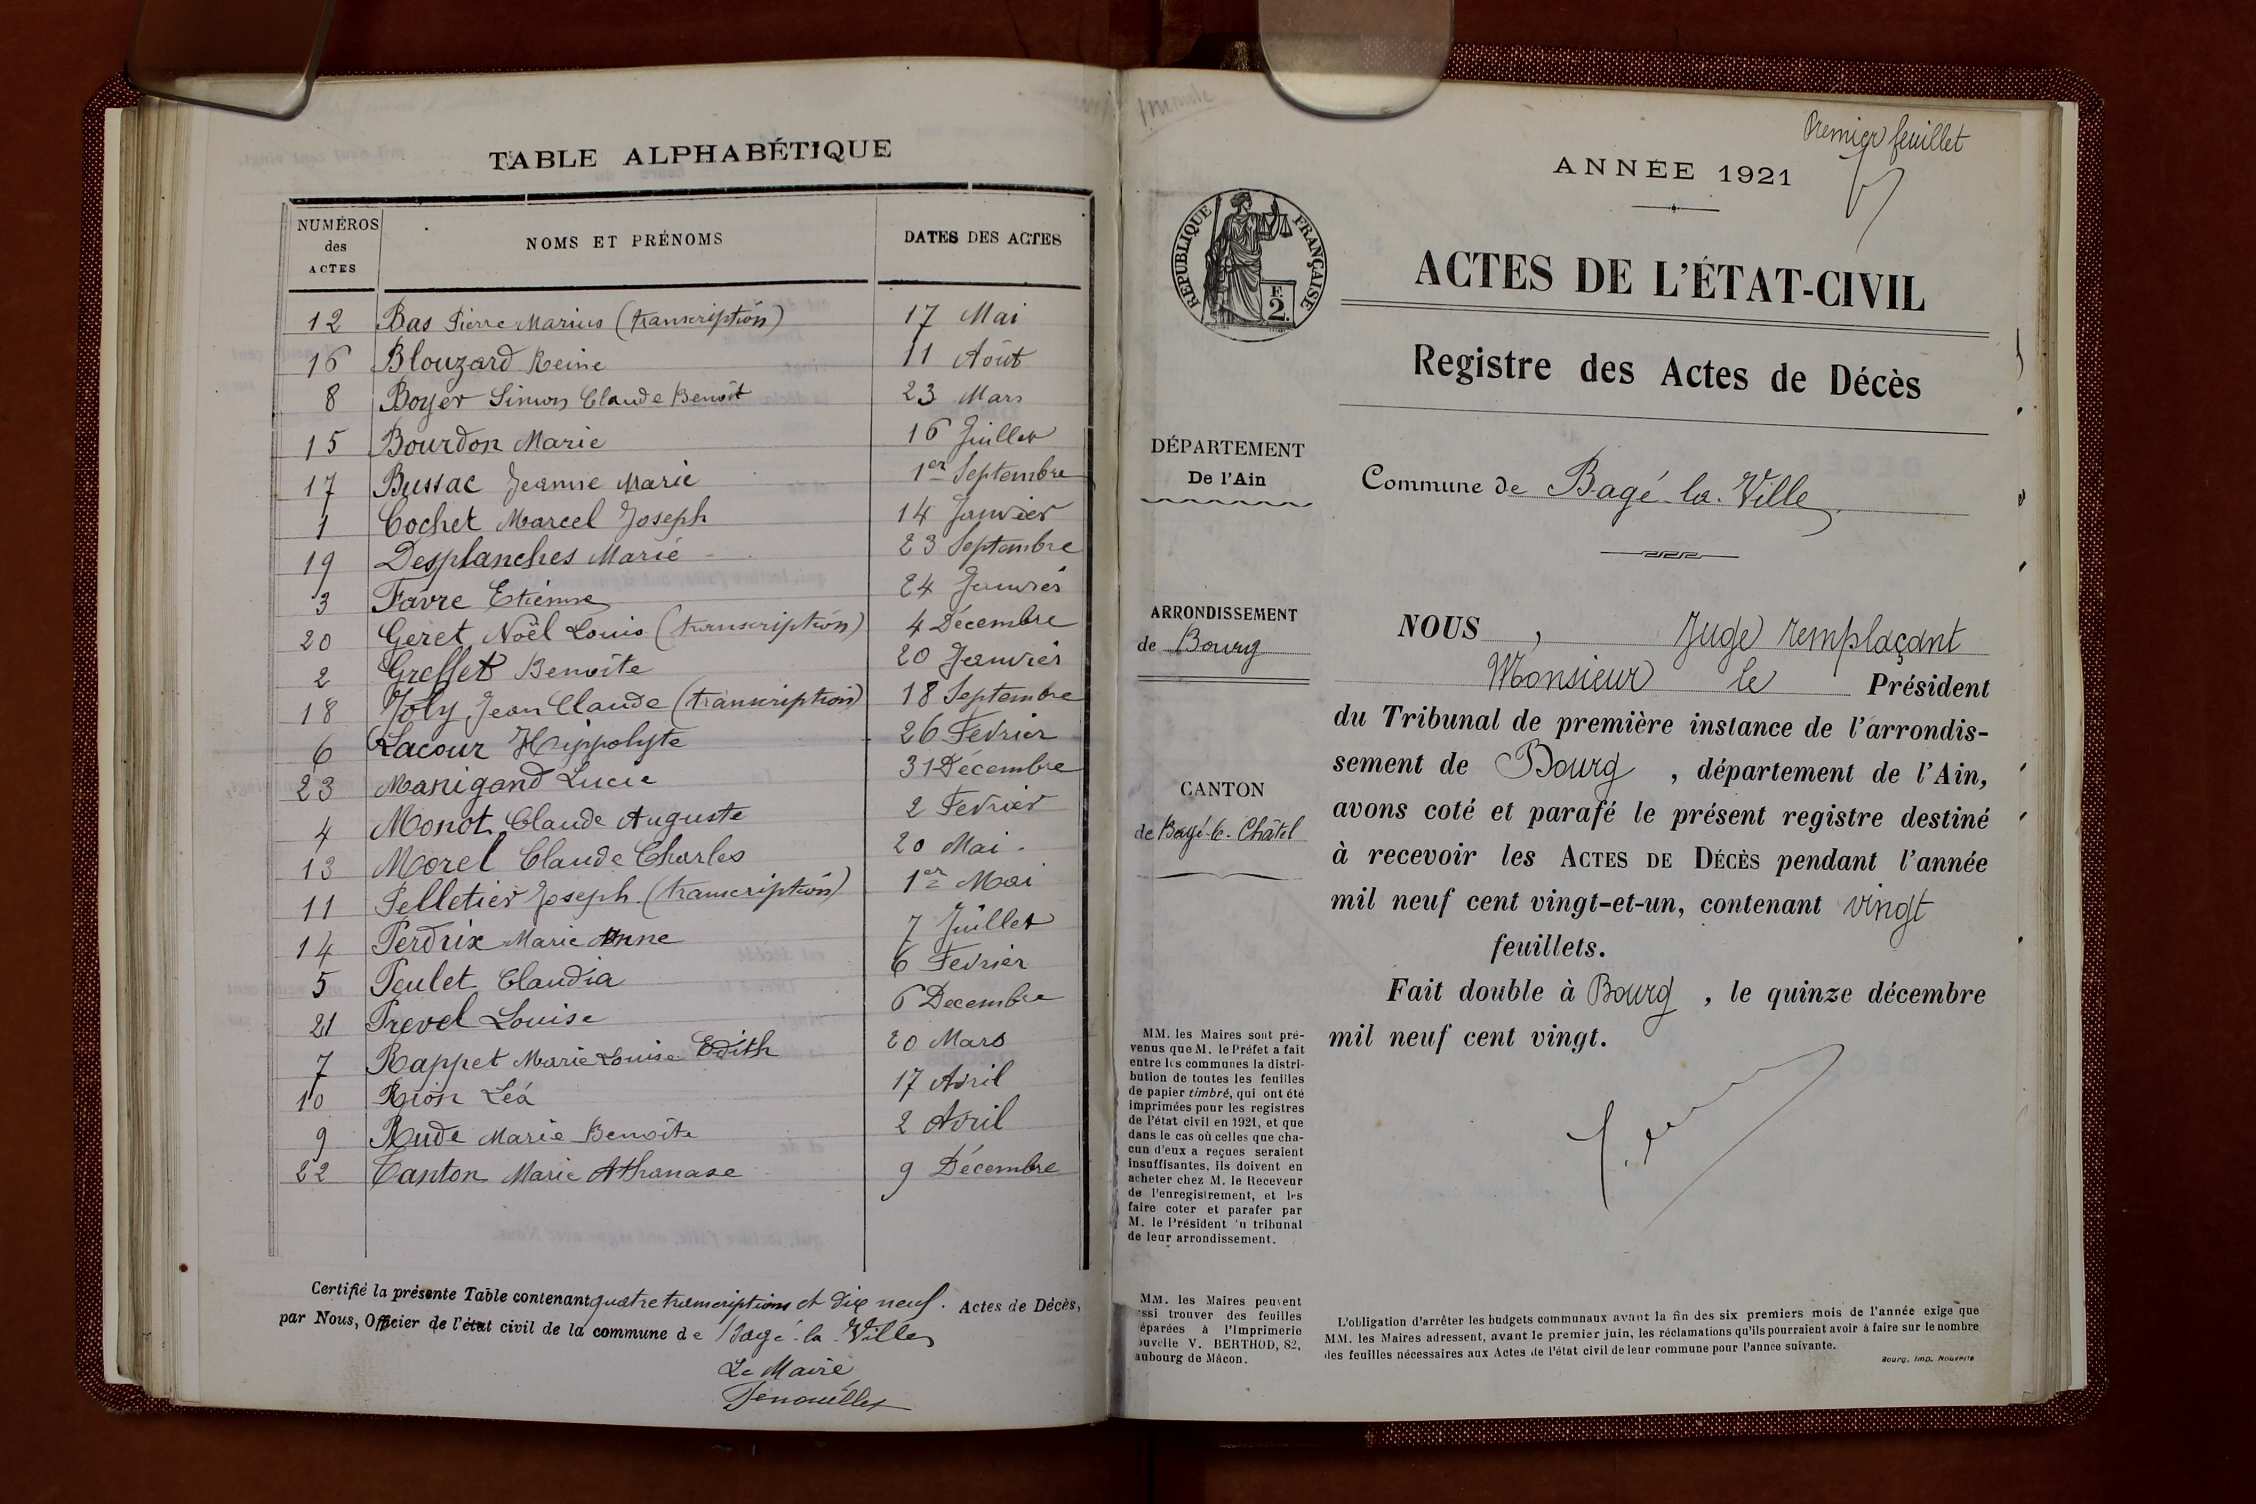 TABLE ALPHABÉTIQUE
NUMÉROS des ACTES NOMS ET PRÉNOMS DATES DES ACTES
12 Bas Pierre Marius (transcription) 17 Mai
16 Blouzard Reine 11 Août
8 Boyer Simon Claude Benoît 23 Mars
15 Bourdon Marie 16 Juillet
17 Bussac Jeanne Marie 1er Septembre
1 Cochet Marcel Joseph 14 Janvier
19 Desplanches Marie 23 Septembre
3 Favre Etienne 24 Janvier
20 Geret Noël Louis (transcription) 4 Décembre
2 Greffet Benoîte 20 Janvier
18 Joly Jean Claude (transcription) 18 Septembre
6 Lacour Hippolyte 26 Fevrier
23 Manigand Lucie 31 Decembre
4 Monot Claude Auguste 2 Fevrier
13 Morel Claude Charles 20 Mai.
11 Pelletier Joseph (transcription) 1er Mai
14 Perdrix Marie Anne 7 Juillet
5 Peulet Claudia 6 Fevrier
21 Prevel Louise 6 Decembre
7 Rappet Marie Louise Edith 20 Mars
10 Rion Léa 17 Avril
9 Rude Marie Benoîte 2 Avril
22 Tanton Marie Athanase 9 Décembre
Certifié la présente Table contenant quatre transcriptions et dix neuf. Actes de Décès,
par Nous, Officier de l'état civil de la commune de Bagé-la-Ville
Le Maire
Premier feuillet
ANNÉE 1921
RÉPUBLIQUE FRANÇAISE
F.
2.
ACTES DE L'ÉTAT-CIVIL
Registre des Actes de Décès
DÉPARTEMENT
De l'Ain
Commune de Bagé-la-Ville
ARRONDISSEMENT
de Bourg
CANTON
de Bagé-le-Châtel
NOUS, Juge remplaçant
Monsieur le Président
du Tribunal de première instance de l'arrondis-
sement de Bourg, département de l'Ain,
avons coté et parafé le présent registre destiné
à recevoir les ACTES DE DÉCÈS pendant l'année
mil neuf cent vingt-et-un, contenant vingt
feuillets.
Fait double à Bourg, le quinze décembre
mil neuf cent vingt.
MM. les Maires sont pré-
venus que M. le Préfet a fait
entre les communes la distri-
bution de toutes les feuilles
de papier timbré, qui ont été
imprimées pour les registres
de l'état civil en 1921, et que
dans le cas où celles que cha-
cun d'eux a reçues seraient
insuffisantes, ils doivent en
acheter chez M. le Receveur
de l'enregistrement, et les
faire coter et parafer par
M. le Président du tribunal
de leur arrondissement.
MM. les Maires peuvent
ssi trouver des feuilles
éparées à l'Imprimerie
ouvelle V. BERTHOD, 82,
aubourg de Mâcon.
L'obligation d'arrêter les budgets communaux avant la fin des six premiers mois de l'année exige que
MM. les Maires adressent, avant le premier juin, les réclamations qu'ils pourraient avoir à faire sur le nombre
des feuilles nécessaires aux Actes de l'état civil de leur commune pour l'année suivante.
Bourg, Imp. Nouvelle